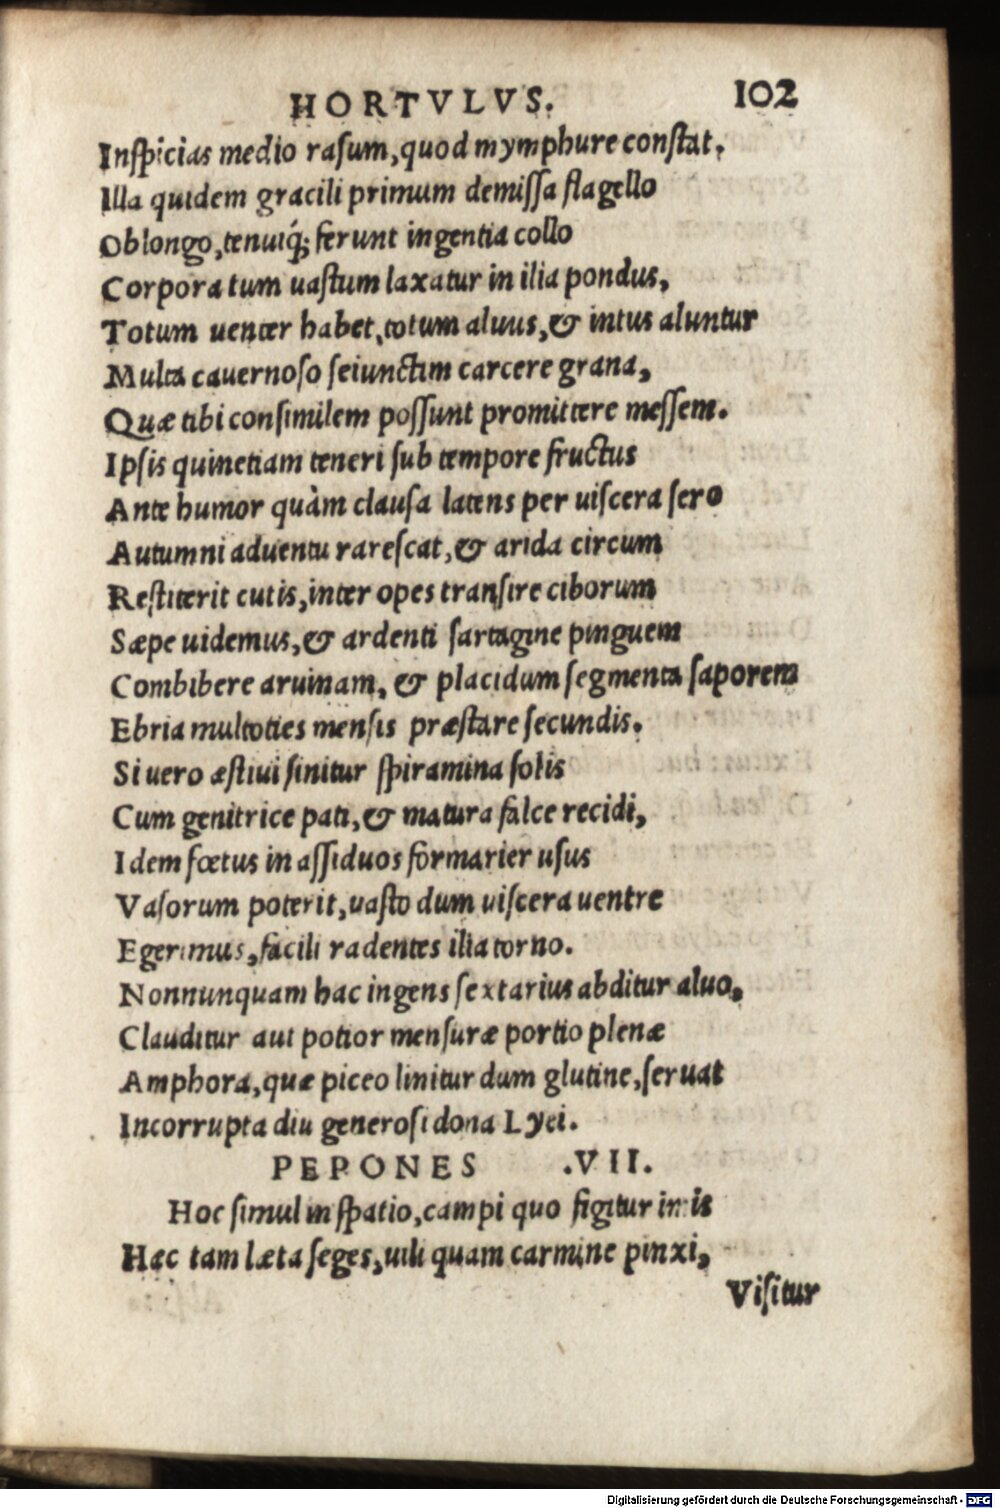 HORTVLVS. 102
Inſpicias medio raſum, quod mymphure conſtat.
Illa quidem gracili primum demiſſa flagello
Oblongo, tenuiq́; ferunt ingentia collo
Corpora tum uaſtum laxatur in ilia pondus,
Totum uenter habet, totum aluus, & intus aluntur
Multa cauernoſo ſeiunctim carcere grana,
Quæ tibi conſimilem poſſunt promittere meſſem.
Ipſis quinetiam teneri ſub tempore fructus
Ante humor quàm clauſa latens per uiſcera ſero
Autumni aduentu rareſcat, & arida circum
Reſtiterit cutis, inter opes tranſire ciborum
Sæpe uidemus, & ardenti ſartagine pinguem
Combibere aruinam, & placidum ſegmenta ſaporem
Ebria multoties menſis præſtare ſecundis.
Si uero æſtiui ſinitur ſpiramina ſolis
Cum genitrice pati, & matura falce recidi,
Idem fœtus in aſſiduos formarier uſus
Vaſorum poterit, uaſto dum uiſcera uentre
Egerimus, facili radentes ilia torno.
Nonnunquam hac ingens ſextarius abditur aluo,
Clauditur aut potior menſuræ portio plenæ
Amphora, quæ piceo linitur dum glutine, ſeruat
Incorrupta diu generoſi dona Lyei.
PEPONES .VII.
Hoc ſimul in ſpatio, campi quo figitur imis
Hæc tam læta ſeges, uili quam carmine pinxi,
Viſitur
Digitalisierung gefördert durch die Deutsche Forschungsgemeinschaft - DFG